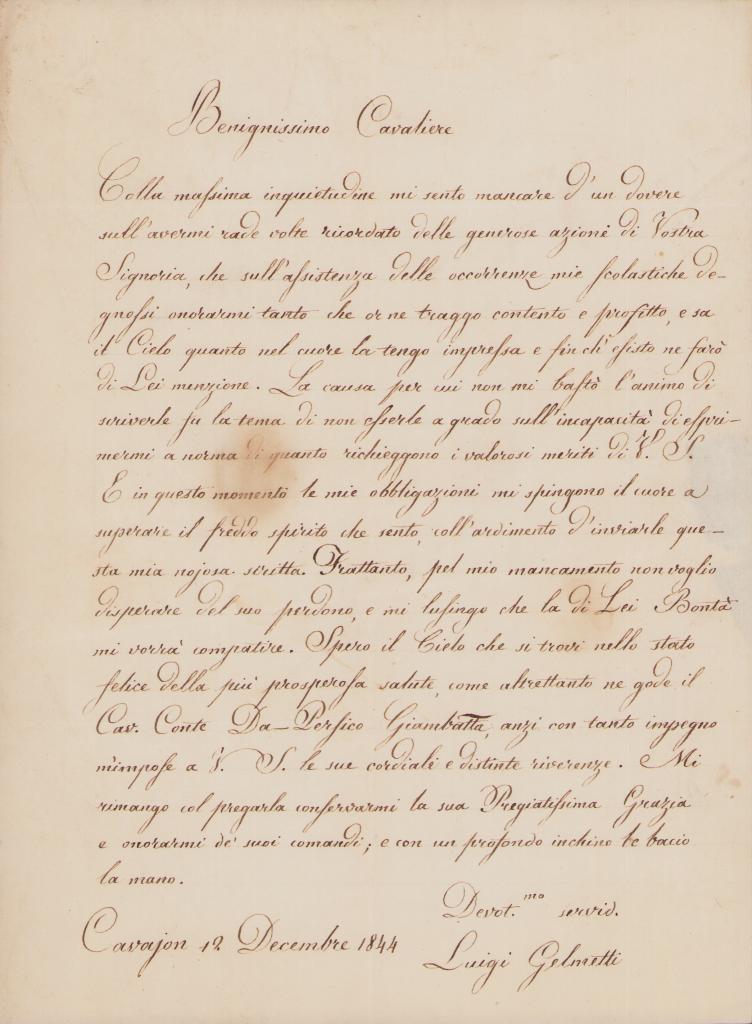 Benignissimo Cavaliere
Colla massima inquietudine mi sento mancare d'un dovere
sull'avermi rade volte ricordato delle generose azioni di Vostra
Signoria, che sull'assistenza delle occorrenze mie scolastiche de-
gnossi onorarmi tanto che or ne traggo contento e profitto, e sa
il Cielo quanto nel cuore la tengo impressa e finch'esisto ne farò
di Lei menzione. La causa per cui non mi bastò l'animo di
scriverle fu la tema di non esserle a grado sull'incapacità di espri-
mermi a norma di quanto richieggono i valorosi meriti di V. S.
E in questo momento le mie obbligazioni mi spingono il cuore a
superare il freddo spirito che sento, coll'ardimento d'inviarle que-
sta mia nojosa scritta. Frattanto, pel mio mancamento non voglio
disperare del suo perdono, e mi lusingo che la di Lei Bontà
mi vorrà compatire. Spero il Cielo che si trovi nello stato
felice della più prosperosa salute, come altrettanto ne gode il
Cav. Conte Da-Persico Giambatta, anzi con tanto impegno
m'impose a V. S. le sue cordiali e distinte riverenze. Mi
rimango col pregarla conservarmi la sua Pregiatissima Grazia
e onorarmi de' suoi comandi; e con un profondo inchino le bacio
la mano.
Devot.mo servid.
Cavajon 12 Decembre 1844
Luigi Gelmetti